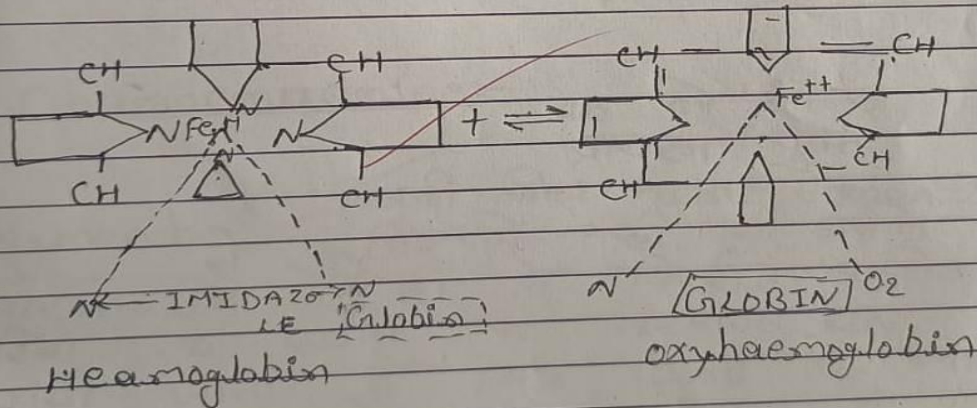 CH CH CH CH
N Fe++ N + ⇌ Fe++
N N
CH CH CH CH
N IMIDAZOLE N Globin N GLOBIN O2
Heamoglobin oxyhaemoglobin